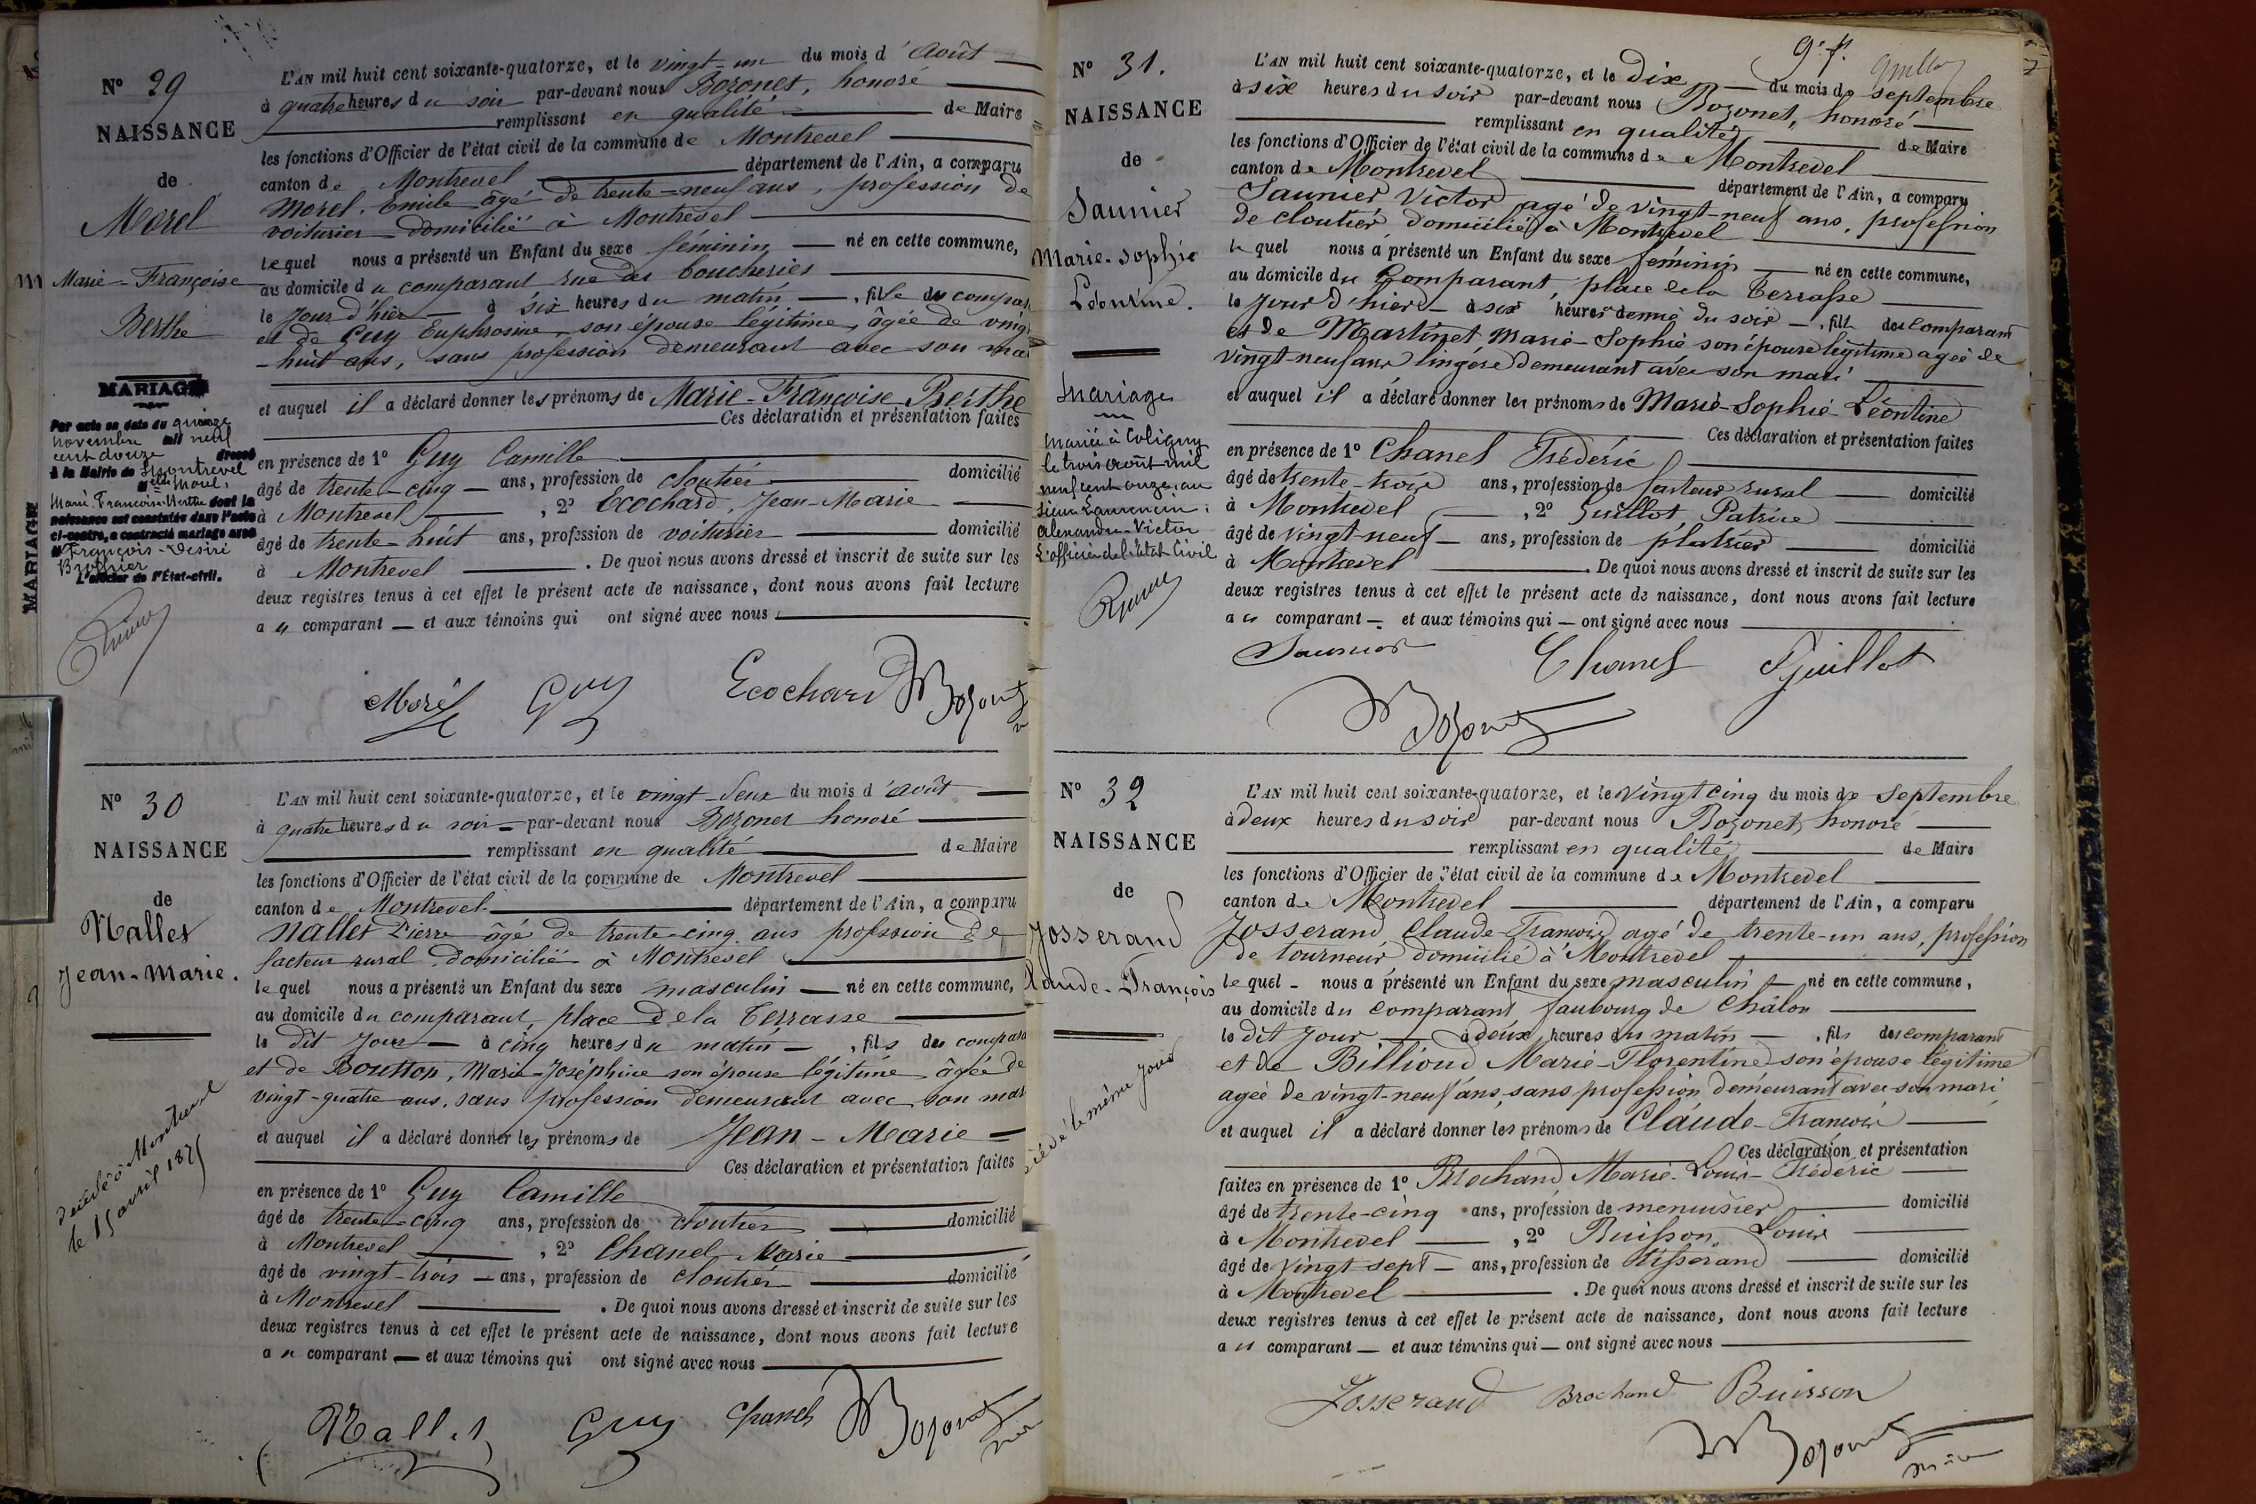 Nº 29
NAISSANCE
de
Morel
Marie-Françoise
Berthe
MARIAGE
Par acte en date du quinze
novembre mil neuf
cent douze dressé
à la Mairie de Montrevel
Melle Morel,
Marie Françoise Berthe dont la
naissance est constatée dans l'acte
ci-contre, a contracté mariage avec
M François-Désiré
L'officier de l'État-civil.
MARIAGE
L'AN mil huit cent soixante-quatorze, et le vingt-un du mois d'Août
à quatre heures du soir par-devant nous Bozonet, honoré
remplissant en qualité de Maire
les fonctions d'Officier de l'état civil de la commune de Montrevel
canton de Montrevel département de l'Ain, a comparu
Morel. Emile âgé de trente-neuf ans, profession de
voiturier domicilié à Montrevel
lequel nous a présenté un Enfant du sexe féminin né en cette commune,
au domicile du comparant rue des boucheries
le jour d'hier à six heures du matin, fille du compar
et de Guy Euphrosine, son épouse légitime, âgée de ving
-huit ans, sans profession demeurant avec son ma
et auquel il a déclaré donner les prénoms de Marie-Françoise-Berthe
Ces déclaration et présentation faites
en présence de 1º Guy Camille
âgé de trente-cinq ans, profession de cloutier domicilié
à Montrevel, 2º Ecochard, Jean-Marie
âgé de trente-huit ans, profession de voiturier domicilié
à Montrevel. De quoi nous avons dressé et inscrit de suite sur les
deux registres tenus à cet effet le présent acte de naissance, dont nous avons fait lecture
au comparant et aux témoins qui ont signé avec nous
Morel Guy Ecochard Bozonet
Nº 30
NAISSANCE
de
Nallet
Jean-Marie.
décédé à Montrevel
le 15 avril 1875
L'AN mil huit cent soixante-quatorze, et le vingt-deux du mois d'Août
à quatre heures du soir par-devant nous Bozonet honoré
remplissant en qualité de Maire
les fonctions d'Officier de l'état civil de la commune de Montrevel
canton de Montrevel département de l'Ain, a comparu
Nallet Pierre âgé de trente-cinq ans profession de
facteur rural domicilié à Montrevel
lequel nous a présenté un Enfant du sexe masculin né en cette commune,
au domicile du comparant, place de la Terrasse
le dit jour à cinq heures du matin, fils du compara
et de Boutton, Marie-Joséphine son épouse légitime âgée de
vingt-quatre ans, sans profession demeurant avec son mar
et auquel il a déclaré donner les prénoms de Jean-Marie
Ces déclaration et présentation faites
en présence de 1º Guy Camille
âgé de trente-cinq ans, profession de cloutier domicilié
à Montrevel, 2º Chanel Marie
âgé de vingt-trois ans, profession de cloutier domicilié
à Montrevel. De quoi nous avons dressé et inscrit de suite sur les
deux registres tenus à cet effet le présent acte de naissance, dont nous avons fait lecture
au comparant et aux témoins qui ont signé avec nous
Nallet Guy Chanel Bozonet
Nº 31.
NAISSANCE
de
Saunier
Marie-Sophie
Léontine.
Mariage
Mariée à Coligny
le trois août mil
neuf cent onze, au
sieur Laurencin,
Alexandre-Victor
L'officier de l'état Civil
9e f.
L'AN mil huit cent soixante-quatorze, et le dix du mois de septembre
à six heures du soir par-devant nous Bozonet, honoré
remplissant en qualité de Maire
les fonctions d'Officier de l'état civil de la commune de Montrevel
canton de Montrevel département de l'Ain, a comparu
Saunier Victor agé de vingt-neuf ans, profession
de cloutier domicilié à Montrevel
lequel nous a présenté un Enfant du sexe féminin né en cette commune,
au domicile du Comparant, place de la Terrasse
le jour d'hier à six heures demie du soir, fille du Comparant
et de Martinet Marie-Sophie son épouse légitime agée de
vingt-neuf ans lingère demeurant avec son mari
et auquel il a déclaré donner les prénoms de Marie-Sophie-Léontine
Ces déclaration et présentation faites
en présence de 1º Chanel Frédéric
âgé de trente-trois ans, profession de facteur rural domicilié
à Montrevel, 2º Guillot, Patrice
âgé de vingt-neuf ans, profession de plâtrier domicilié
à Montrevel. De quoi nous avons dressé et inscrit de suite sur les
deux registres tenus à cet effet le présent acte de naissance, dont nous avons fait lecture
au comparant et aux témoins qui ont signé avec nous
Saunier Chanel Guillot
Bozonet
Nº 32
NAISSANCE
de
Josserand
laude-François
décédé le même jour
L'AN mil huit cent soixante-quatorze, et le vingt cinq du mois de septembre
à deux heures du soir par-devant nous Bozonet, honoré
remplissant en qualité de Maire
les fonctions d'Officier de l'état civil de la commune de Montrevel
canton de Montrevel département de l'Ain, a comparu
Josserand Claude-François agé de trente-un ans, profession
de tourneur domicilié à Montrevel
lequel nous a présenté un Enfant du sexe masculin né en cette commune,
au domicile du Comparant faubourg de Châlon
le dit jour à deux heures du matin, fils du comparant
et de Billioud Marie-Florentine son épouse légitime
agée de vingt-neuf ans, sans profession demeurant avec son mari,
et auquel il a déclaré donner les prénoms de Claude-François
Ces déclaration et présentation
faites en présence de 1º Brochand Marie-Louis-Frédéric
âgé de trente-cinq ans, profession de menuisier domicilié
à Montrevel, 2º Buisson, Louis
âgé de vingt sept ans, profession de tisserand domicilié
à Montrevel. De quoi nous avons dressé et inscrit de suite sur les
deux registres tenus à cet effet le présent acte de naissance, dont nous avons fait lecture
au comparant et aux témoins qui ont signé avec nous
Josserand Brochand Buisson
Bozonet